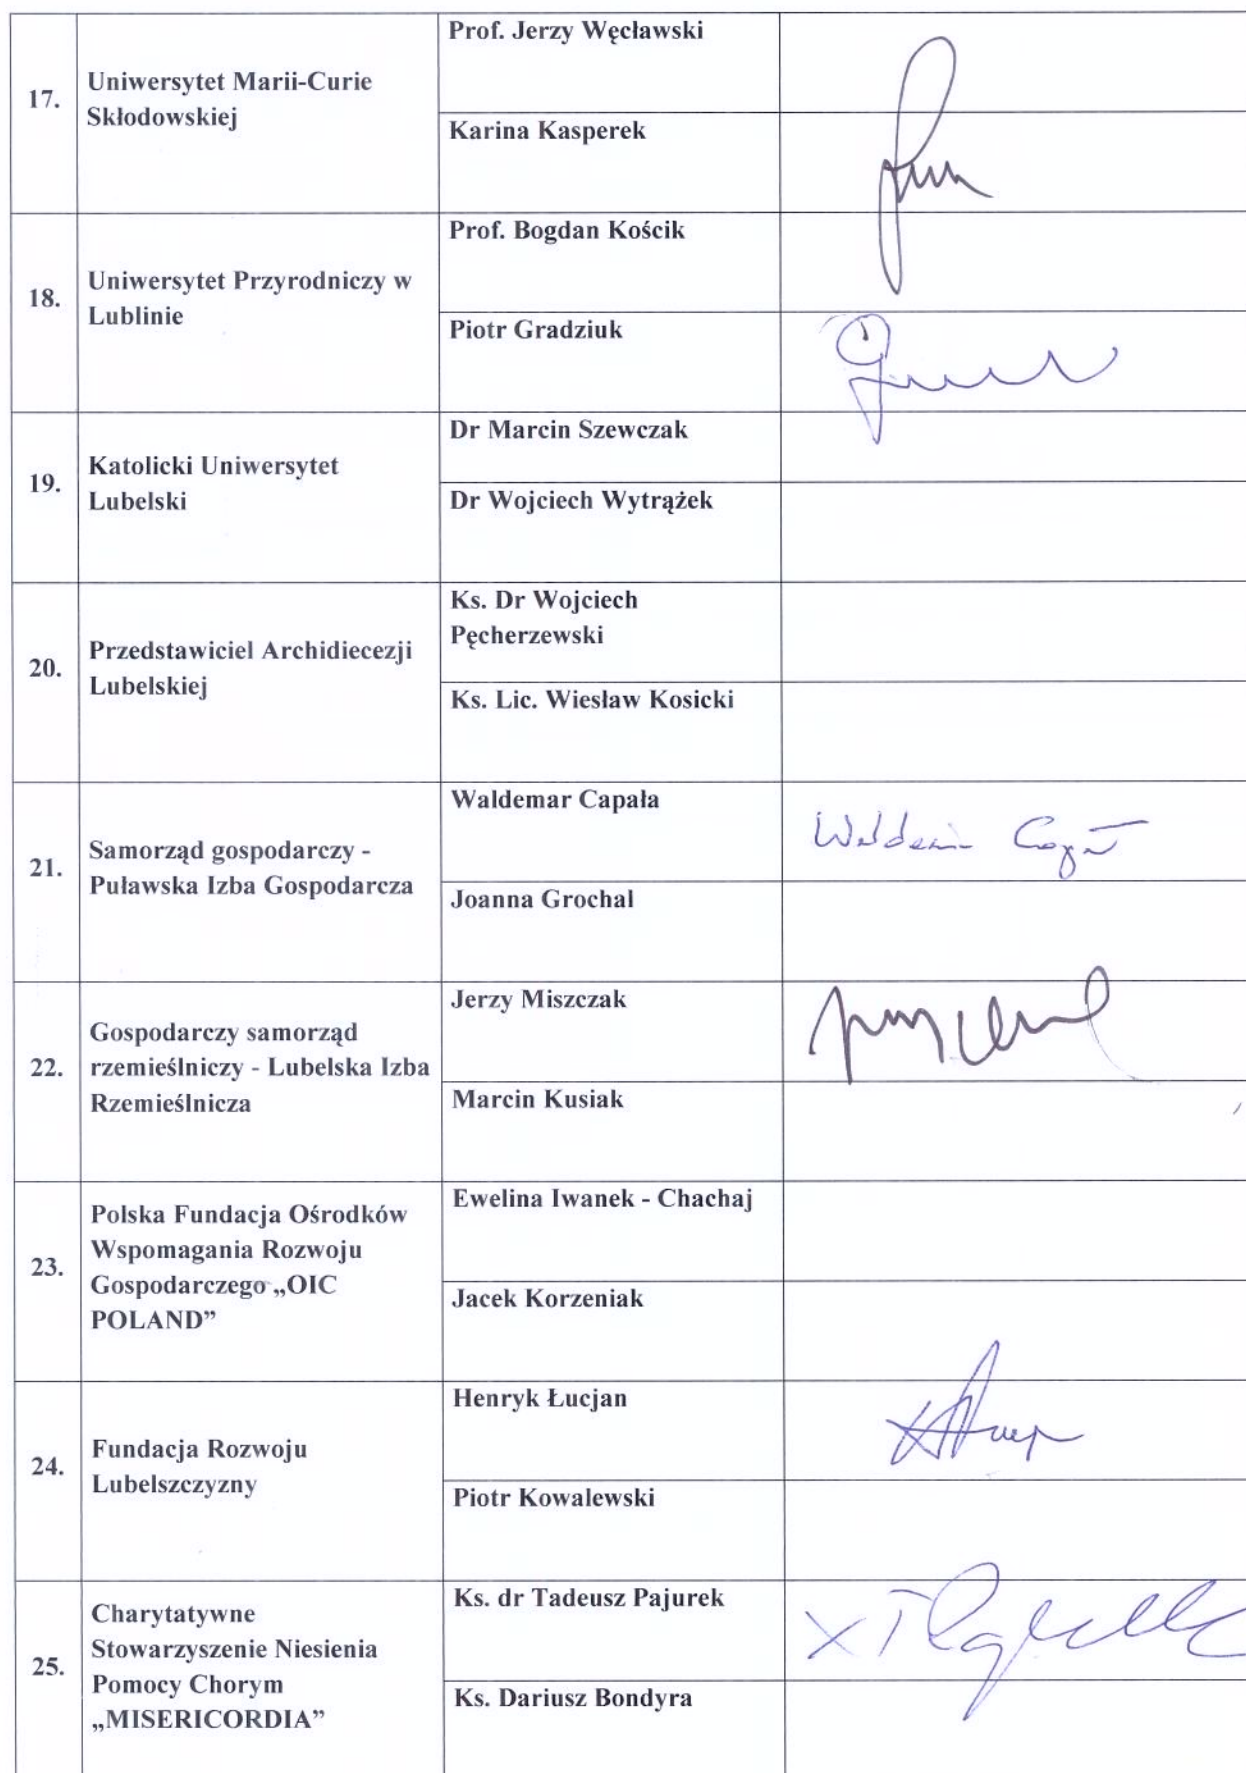 17.
Uniwersytet Marii-Curie
Skłodowskiej
Prof. Jerzy Węcławski
Karina Kasperek
18.
Uniwersytet Przyrodniczy w
Lublinie
Prof. Bogdan Kościk
Piotr Gradziuk
19.
Katolicki Uniwersytet
Lubelski
Dr Marcin Szewczak
Dr Wojciech Wytrążek
20.
Przedstawiciel Archidiecezji
Lubelskiej
Ks. Dr Wojciech
Pęcherzewski
Ks. Lic. Wiesław Kosicki
21.
Samorząd gospodarczy -
Puławska Izba Gospodarcza
Waldemar Capała
Joanna Grochal
22.
Gospodarczy samorząd
rzemieślniczy - Lubelska Izba
Rzemieślnicza
Jerzy Miszczak
Marcin Kusiak
23.
Polska Fundacja Ośrodków
Wspomagania Rozwoju
Gospodarczego „OIC
POLAND”
Ewelina Iwanek - Chachaj
Jacek Korzeniak
24.
Fundacja Rozwoju
Lubelszczyzny
Henryk Łucjan
Piotr Kowalewski
25.
Charytatywne
Stowarzyszenie Niesienia
Pomocy Chorym
„MISERICORDIA”
Ks. dr Tadeusz Pajurek
Ks. Dariusz Bondyra